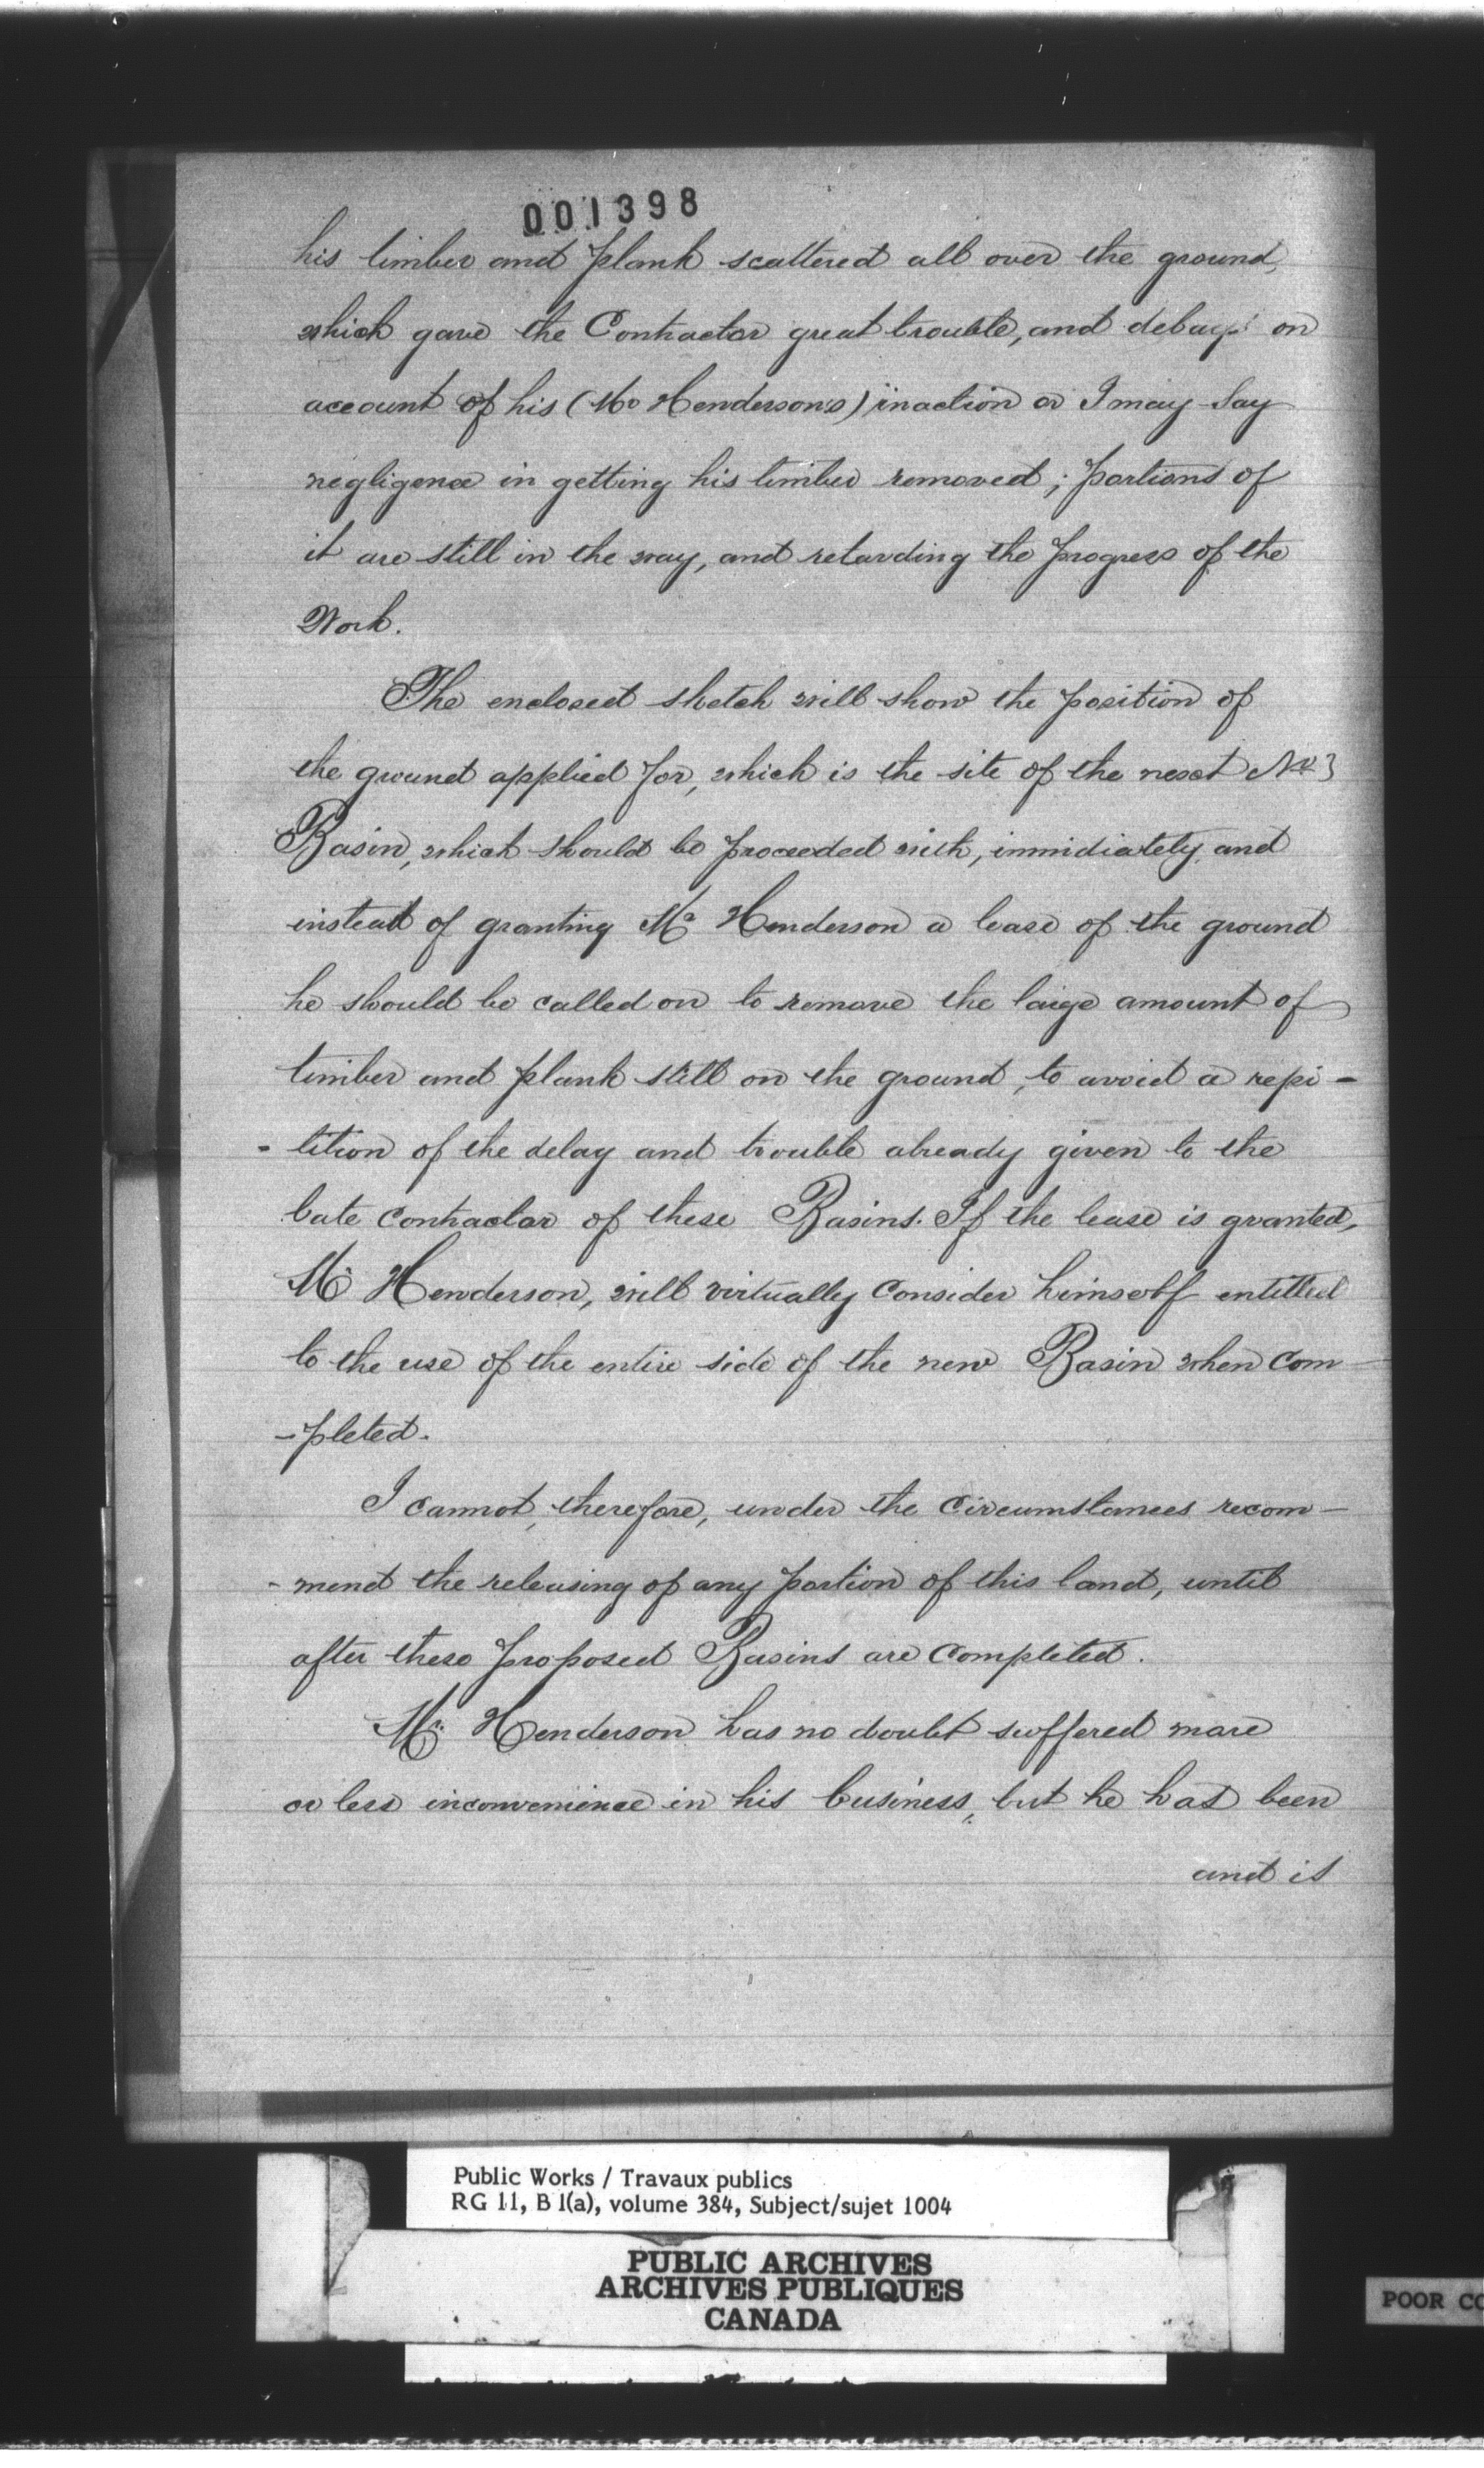 001398
his timber and plank scattered all over the ground,
which gave the Contractor great trouble, and delays on
account of his (Mr Henderson's) inaction or I may Say
negligence in getting his timber removed; portions of
it are still in the way, and retarding the progress of the
Work.
The enclosed sketch will show the position of
the ground applied for, which is the site of the next No 3
Basin, which should be proceeded with, immidiately, and
instead of granting Mr Henderson a lease of the ground
he should be called on to remove the large amount of
timber and plank still on the ground, to avoid a repi-
-tition of the delay and trouble already given to the
late contractor of these Basins. If the lease is granted,
Mr Henderson, will virtually Consider himself entitled
to the use of the entire side of the new Basin when Com-
-pleted.
I cannot, therefore, under the Circumstances recom-
-mend the releasing of any portion of this land, until
after these proposed Basins are Completed.
Mr. Henderson has no doubt suffered more
or less inconvenience in his business, but he has been
and is
Public Works / Travaux publics
RG 11, B 1(a), volume 384, Subject/sujet 1004
PUBLIC ARCHIVES
ARCHIVES PUBLIQUES
CANADA
POOR CO